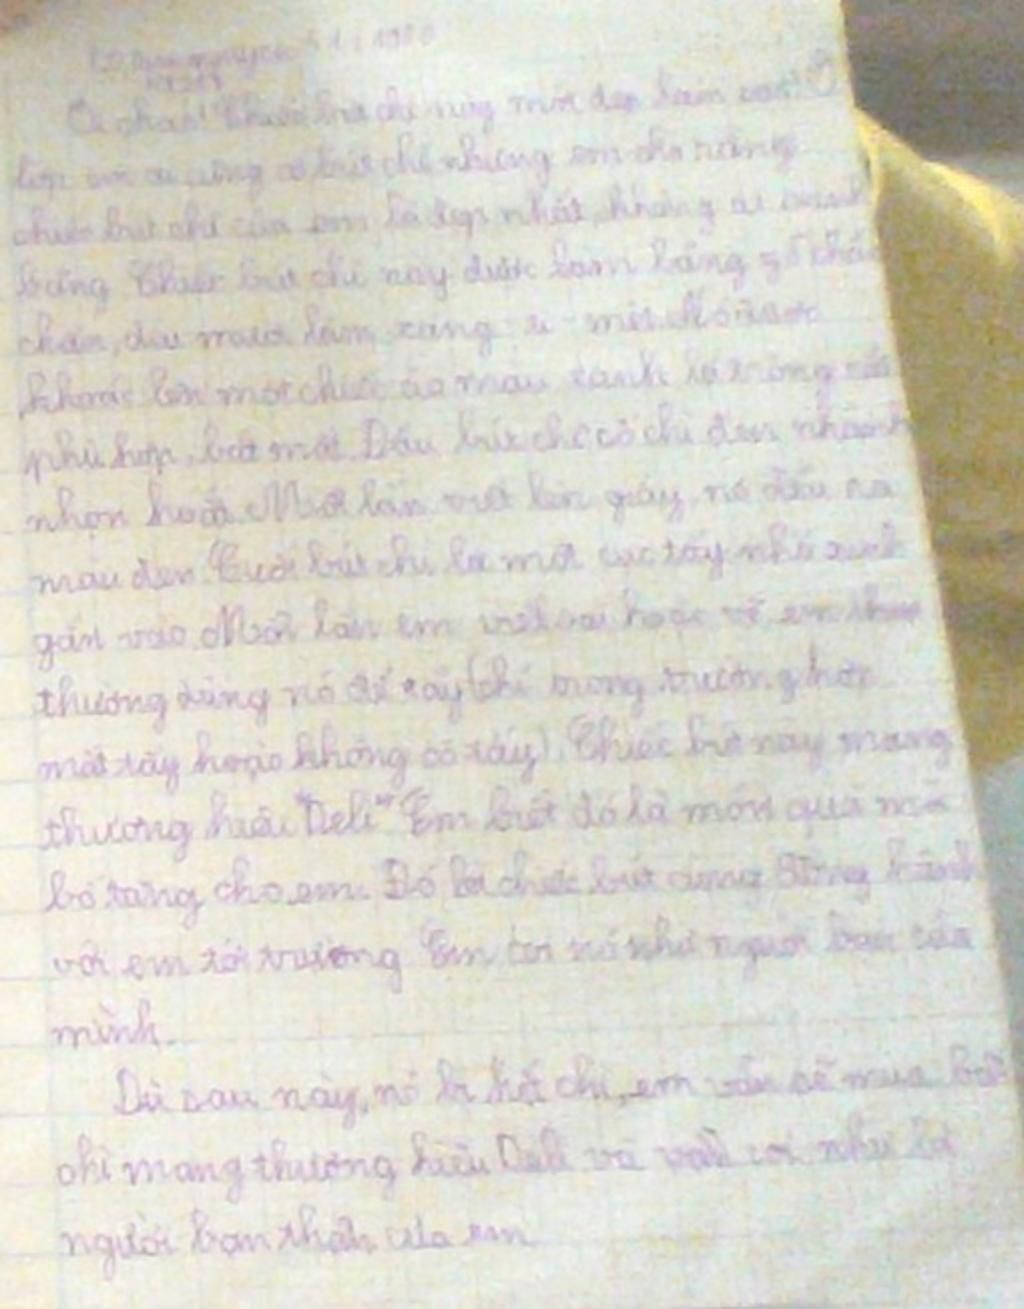 Ôi chao! Chiếc bút chì này mới đẹp làm sao! Ở
lớp em ai cũng có bút chì nhưng em cho rằng
chiếc bút chì của em là đẹp nhất, không ai sánh
bằng. Chiếc bút chì này được làm bằng gỗ chắc
chắn, dài mười lăm xăng - ti - mét. Nó được
khoác lên một chiếc áo màu xanh lá trông rất
phù hợp, bắt mắt. Đầu bút chì có chì đen
nhọn hoắt. Mỗi lần viết lên giấy, nó đều ra
màu đen. Cuối bút chì là một cục tẩy nhỏ xinh
gắn vào. Mỗi lần em viết sai hoặc vẽ, em
thường dùng nó để tẩy (chỉ trong trường hợp
mất tẩy hoặc không có tẩy). Chiếc bút này mang
thương hiệu "Deli". Em biết đó là món quà mà
bố tặng cho em. Đó là chiếc bút cùng đồng hành
với em tới trường. Em coi nó như người bạn của
mình.
Dù sau này, nó bị hết chì, em vẫn sẽ mua bút
chì mang thương hiệu Deli và vẫn coi như là
người bạn thân của em